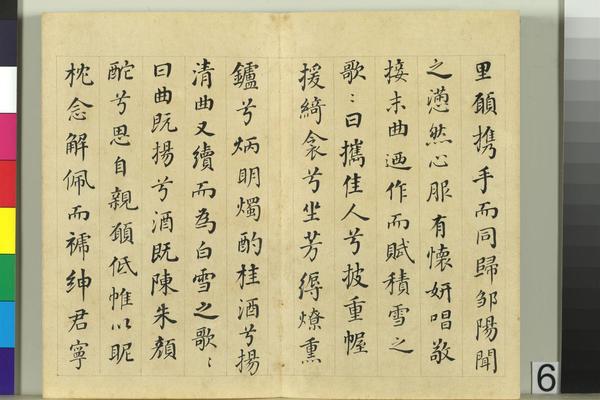 里願携手而同歸鄒陽聞
之懣然心服有懷妍唱敬
接末曲迺作而賦積雪之
歌〻曰攜佳人兮披重幄
援綺衾兮坐芳縟燎熏
鑪兮炳明燭酌桂酒兮揚
清曲又續而為白雪之歌〻
曰曲既揚兮酒既陳朱顏
酡兮思自親願低帷以昵
枕念解佩而褫紳君寧
6